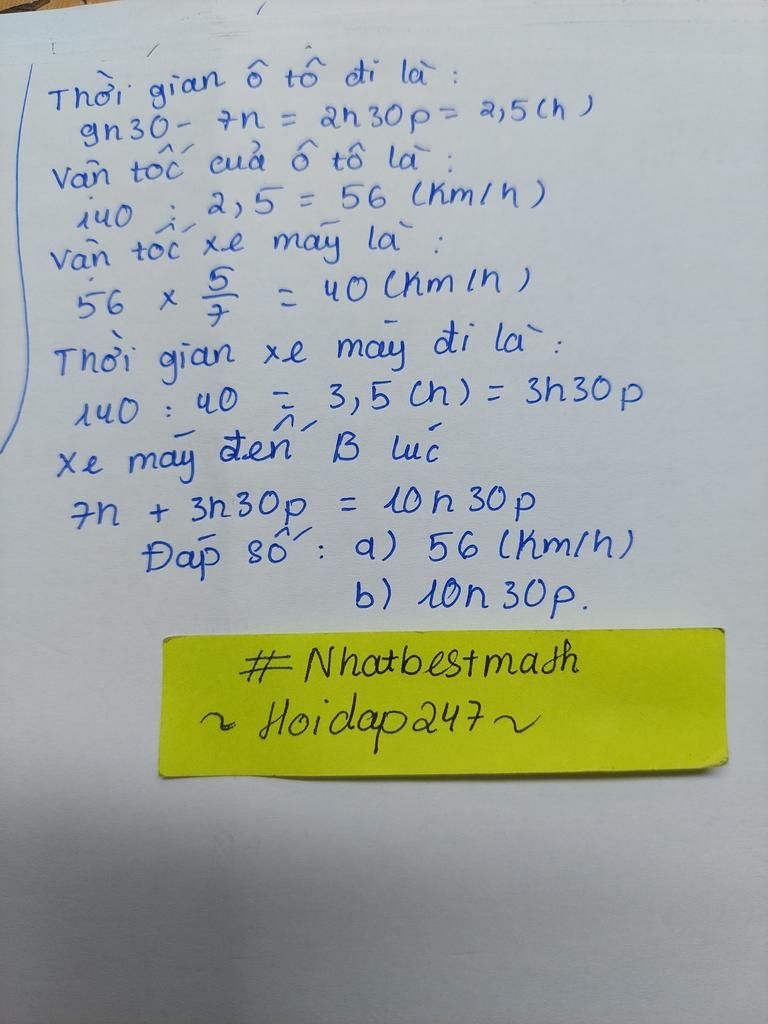 Thời gian ô tô đi là :
9h30 - 7h = 2h30p = 2,5 (h)
Vận tốc của ô tô là :
140 : 2,5 = 56 (km/h)
Vận tốc xe máy là :
56 x 5/7 = 40 (km/h)
Thời gian xe máy đi là :
140 : 40 = 3,5 (h) = 3h30p
Xe máy đến B lúc
7h + 3h30p = 10h30p
Đáp số : a) 56 (km/h)
b) 10h30p.
#Nhatbestmath
~ Hoidap247 ~